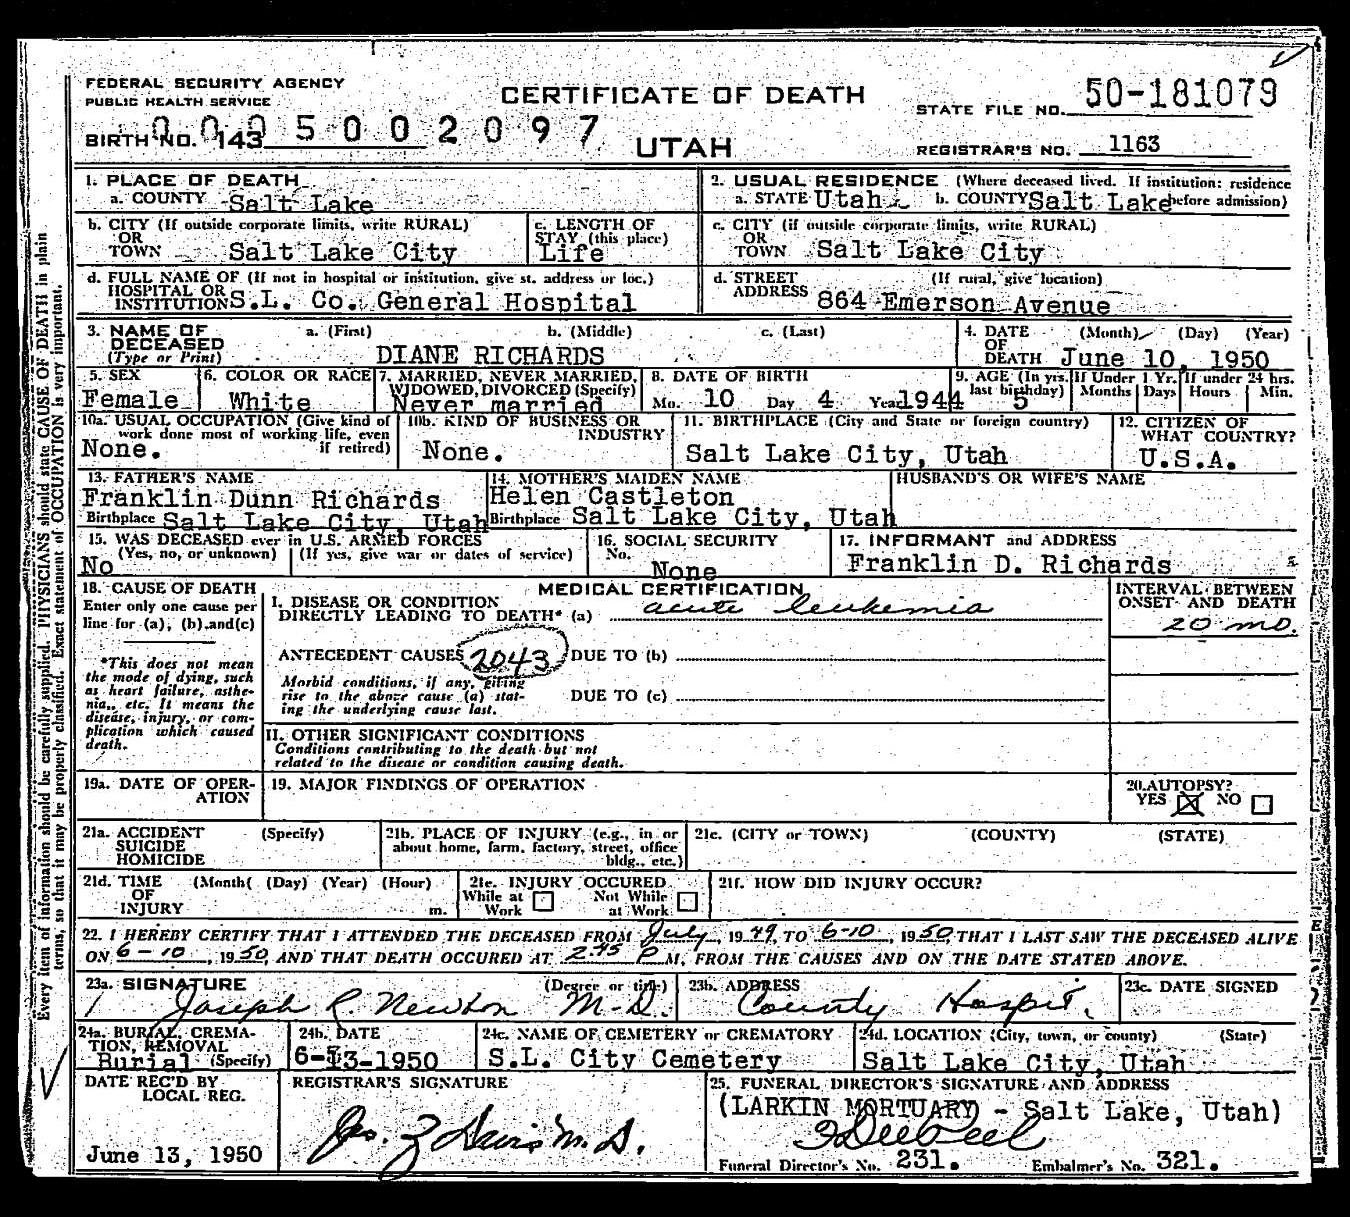 FEDERAL SECURITY AGENCY
PUBLIC HEALTH SERVICE
CERTIFICATE OF DEATH
STATE FILE NO. 50-181079
BIRTH NO. 143
0005002097
UTAH
REGISTRAR'S NO. 1163
1. PLACE OF DEATH
a. COUNTY Salt Lake
2. USUAL RESIDENCE (Where deceased lived. If institution: residence before admission)
a. STATE Utah b. COUNTY Salt Lake
b. CITY (If outside corporate limits, write RURAL)
OR
TOWN Salt Lake City
c. LENGTH OF
STAY (this place)
Life
c. CITY (if outside corporate limits, write RURAL)
OR
TOWN Salt Lake City
d. FULL NAME OF (If not in hospital or institution, give st. address or loc.)
HOSPITAL OR
INSTITUTION S.L. Co. General Hospital
d. STREET (If rural, give location)
ADDRESS 864 Emerson Avenue
3. NAME OF
DECEASED
(Type or Print)
a. (First) b. (Middle) c. (Last)
DIANE RICHARDS
4. DATE (Month) (Day) (Year)
OF
DEATH June 10, 1950
5. SEX
Female
6. COLOR OR RACE
White
7. MARRIED, NEVER MARRIED,
WIDOWED, DIVORCED (Specify)
Never married
8. DATE OF BIRTH
Mo. 10 Day 4 Year 1944
9. AGE (In yrs. last birthday) 5
If Under 1 Yr.
Months Days
If under 24 hrs.
Hours Min.
10a. USUAL OCCUPATION (Give kind of
work done most of working life, even
if retired)
None.
10b. KIND OF BUSINESS OR
INDUSTRY
None.
11. BIRTHPLACE (City and State or foreign country)
Salt Lake City, Utah
12. CITIZEN OF
WHAT COUNTRY?
U.S.A.
13. FATHER'S NAME
Franklin Dunn Richards
Birthplace Salt Lake City, Utah
14. MOTHER'S MAIDEN NAME
Helen Castleton
Birthplace Salt Lake City, Utah
HUSBAND'S OR WIFE'S NAME
15. WAS DECEASED ever in U.S. ARMED FORCES
(Yes, no, or unknown) (If yes, give war or dates of service)
No
16. SOCIAL SECURITY
No.
None
17. INFORMANT and ADDRESS
Franklin D. Richards
18. CAUSE OF DEATH
Enter only one cause per
line for (a), (b) and (c)
*This does not mean
the mode of dying, such
as heart failure, asthe-
nia, etc. It means the
disease, injury, or com-
plication which caused
death.
MEDICAL CERTIFICATION
I. DISEASE OR CONDITION
DIRECTLY LEADING TO DEATH* (a) acute leukemia
INTERVAL BETWEEN
ONSET AND DEATH
20 mo.
ANTECEDENT CAUSES 2043 DUE TO (b)
Morbid conditions, if any, giving
rise to the above cause (a) stat-
ing the underlying cause last.
DUE TO (c)
II. OTHER SIGNIFICANT CONDITIONS
Conditions contributing to the death but not
related to the disease or condition causing death.
19a. DATE OF OPER-
ATION
19. MAJOR FINDINGS OF OPERATION
20. AUTOPSY?
YES X NO
21a. ACCIDENT (Specify)
SUICIDE
HOMICIDE
21b. PLACE OF INJURY (e.g., in or
about home, farm, factory, street, office
bldg., etc.)
21c. (CITY or TOWN) (COUNTY) (STATE)
21d. TIME (Month( (Day) (Year) (Hour)
OF
INJURY m.
21e. INJURY OCCURED
While at Work Not While at Work
21f. HOW DID INJURY OCCUR?
22. I HEREBY CERTIFY THAT I ATTENDED THE DECEASED FROM July, 1949, TO 6-10, 1950, THAT I LAST SAW THE DECEASED ALIVE
ON 6-10, 1950, AND THAT DEATH OCCURED AT 2:45 P M., FROM THE CAUSES AND ON THE DATE STATED ABOVE.
23a. SIGNATURE (Degree or title)
Joseph R. Newton M.D.
23b. ADDRESS
County Hospit.
23c. DATE SIGNED
24a. BURIAL, CREMA-
TION, REMOVAL
Burial (Specify)
24b. DATE
6-13-1950
24c. NAME OF CEMETERY or CREMATORY
S.L. City Cemetery
24d. LOCATION (City, town, or county) (State)
Salt Lake City, Utah
DATE REC'D BY
LOCAL REG.
June 13, 1950
REGISTRAR'S SIGNATURE
Davis M.D.
25. FUNERAL DIRECTOR'S SIGNATURE AND ADDRESS
(LARKIN MORTUARY - Salt Lake, Utah)
Funeral Director's No. 231. Embalmer's No. 321.
Every item of information should be carefully supplied. PHYSICIANS should state CAUSE OF DEATH in plain
terms, so that it may be properly classified. Exact statement of OCCUPATION is very important.